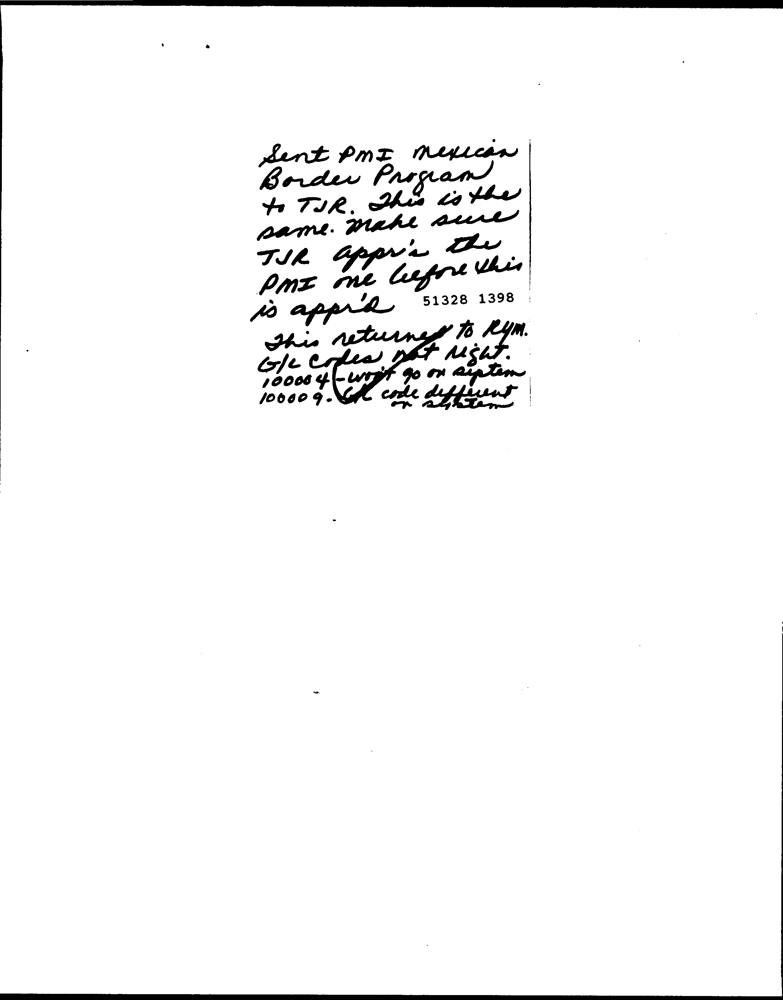 Sent PMI Mexican
Border Program
to TJR. This is the
same. Make sure
TJR appr's the
PMI one before this
is appr'd
51328 1398
This returned to RYM.
G/L Codes not right.
100004 - won't go on system
100009. G/L code different
on system